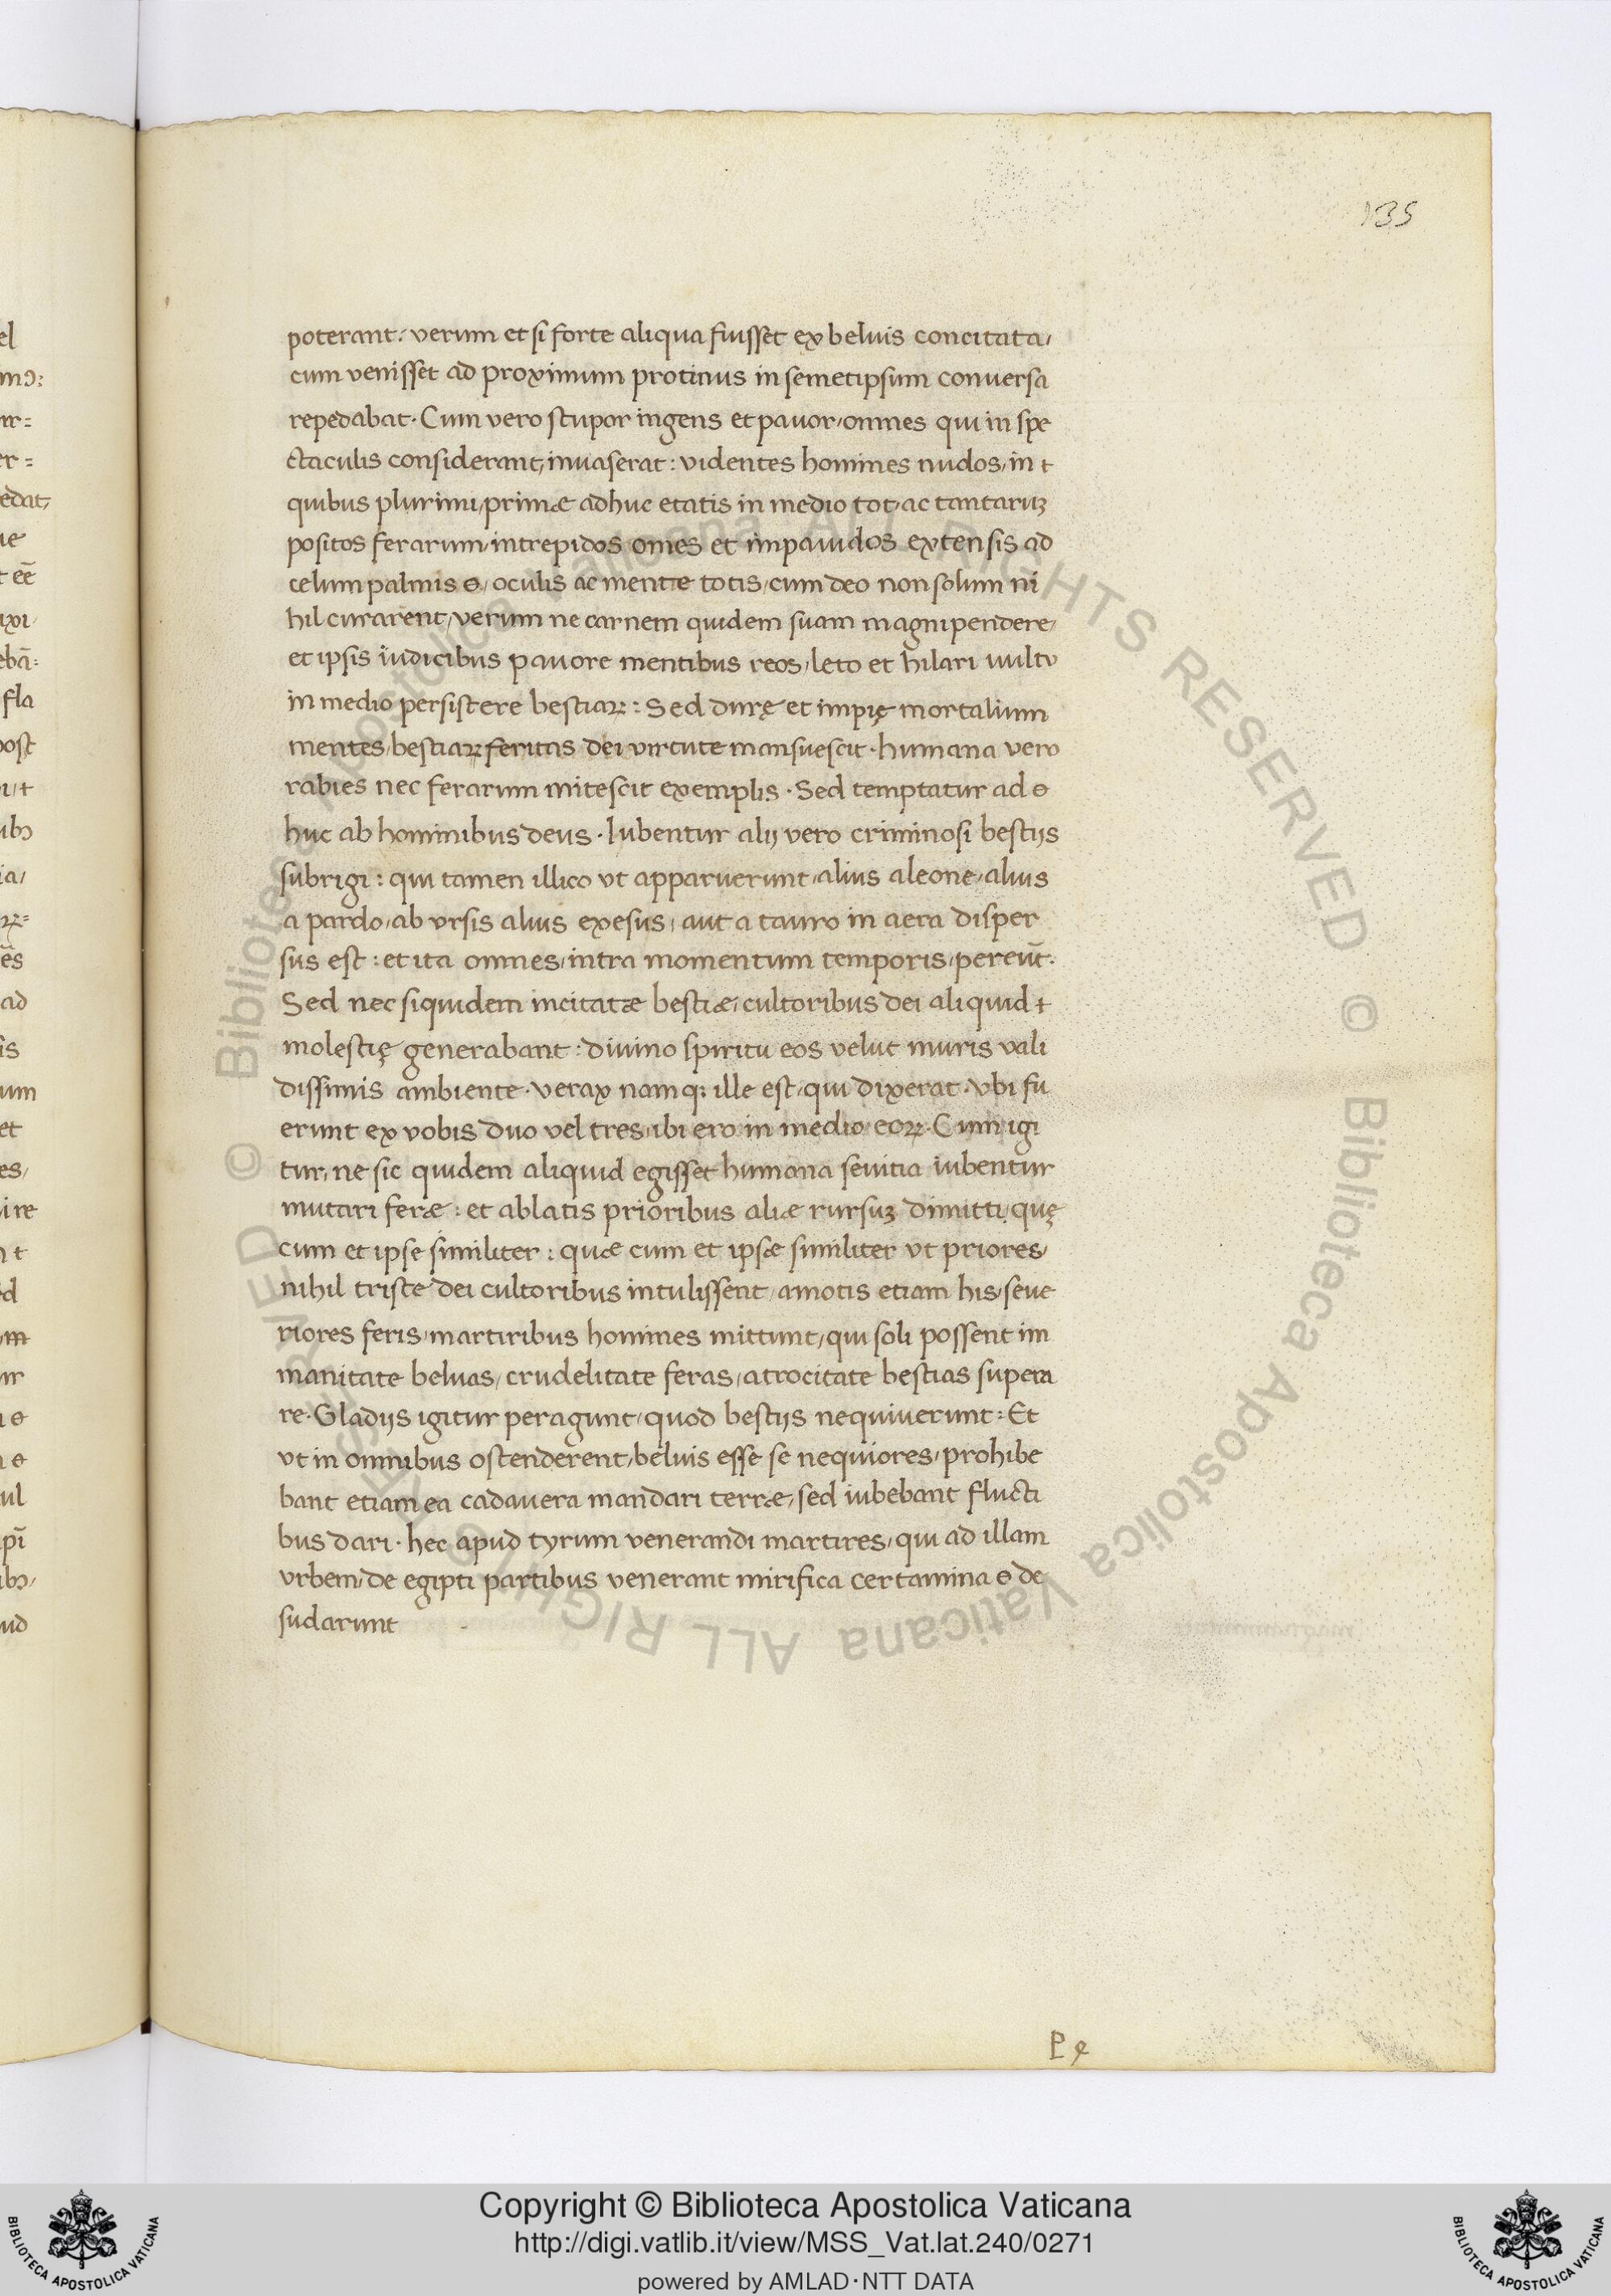 135
poterant: verum et si forte aliqua fuisset ex beluis concitata,
cum venisset ad proximum protinus in semetipsum conversa
repedabat. Cum vero stupor ingens et pavor, omnes qui in spe
ctaculis considerant, invaserat: videntes homines nudos, in t
quibus plurimi, primæ adhuc etatis in medio tot, ac tantaruꝫ
positos ferarum, intrepidos om̃es et impavidos extensis ad
celum palmis e, oculis ac mente totis, cum deo non solum ni
hil curarent, verum ne carnem quidem suam magnipendere,
et ipsis iudicibus pavore mentibus reos, leto et hilari uultu
in medio persistere bestiaꝝ: Sed durę et impię mortalium
mentes, bestiaꝝ feritas dei virtute mansuescit. humana vero
rabies nec ferarum mitescit exemplis. Sed temptatur ad e
huc ab hominibus deus. Iubentur alij vero criminosi bestijs
subrigi: qui tamen illico ut apparuerunt, alius a leone, alius
a pardo, ab ursis alius exesus, aut a tauro in aera disper
sus est: et ita omnes, intra momentum temporis, pereũt.
Sed nec siquidem incitatæ bestiæ, cultoribus dei aliquid t
molestię generabant: divino spiritu eos velut muris vali
dissimis ambiente. verax namqꝫ ille est, qui dixerat. ubi fu
erunt ex vobis duo vel tres, ibi ero in medio eoꝝ. Cum igi
tur, ne sic quidem aliquid egisset humana sevitia iubentur
mutari feræ: et ablatis prioribus aliæ rursuꝫ dimitti, quę
cum et ipse similiter: quæ cum et ipsæ similiter ut priores,
nihil triste dei cultoribus intulissent, amotis etiam his, seve
riores feris, martiribus homines mittunt, qui soli possent im
manitate beluas, crudelitate feras, atrocitate bestias supera
re. Gladijs igitur peragunt, quod bestijs nequiverunt: Et
ut in omnibus ostenderent, beluis esse se nequiores, prohibe
bant etiam ea cadavera mandari terræ, sed iubebant flucti
bus dari. hec apud tyrum venerandi martires, qui ad illam
urbem, de egipti partibus venerant mirifica certamina e de
sudarunt
Copyright © Biblioteca Apostolica Vaticana
http://digi.vatlib.it/view/MSS_Vat.lat.240/0271
powered by AMLAD·NTT DATA